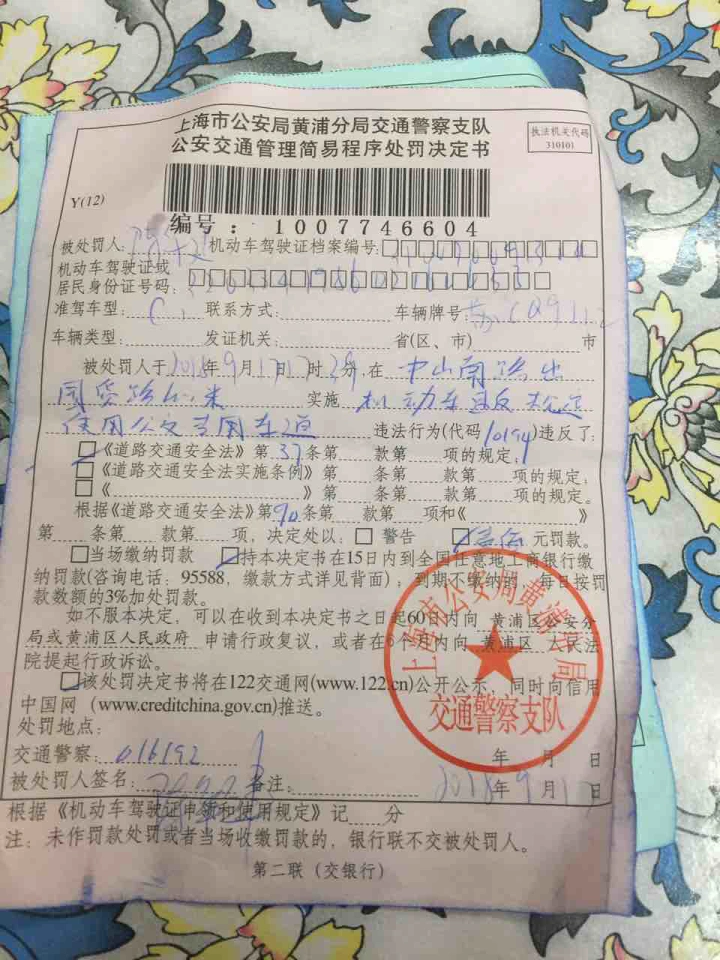 上海市公安局黄浦分局交通警察支队
公安交通管理简易程序处罚决定书
执法机关代码
310101
Y(12)
编号：1007746604
被处罚人： 机动车驾驶证档案编号：
机动车驾驶证或
居民身份证号码：
准驾车型：C1 联系方式： 车辆牌号：
车辆类型： 发证机关： 省(区、市) 市
被处罚人于2018年9月17日17时29分,在 中山南路出
国货路 米 实施 机动车违反规定
使用公交专用车道 违法行为(代码10194)违反了:
《道路交通安全法》第37条第 款第 项的规定;
《道路交通安全法实施条例》第 条第 款第 项的规定;
《 》第 条第 款第 项的规定。
根据《道路交通安全法》第90条第 款第 项和《 》
第 条第 款第 项，决定处以：□ 警告 元罚款。
□当场缴纳罚款 持本决定书在15日内到全国任意地工商银行缴
纳罚款(咨询电话：95588，缴款方式详见背面)；到期不缴纳的，每日按罚
款数额的3%加处罚款。
如不服本决定，可以在收到本决定书之日起60日内向 黄浦区公安分
局或黄浦区人民政府 申请行政复议，或者在6个月内向 黄浦区 人民法
院提起行政诉讼。
该处罚决定书将在122交通网(www.122.cn)公开公示，同时向信用
中国网（www.creditchina.gov.cn)推送。
处罚地点：
交通警察：016192
被处罚人签名： 备注： 2018年9月17日
根据《机动车驾驶证申领和使用规定》记 分
注：未作罚款处罚或者当场收缴罚款的，银行联不交被处罚人。
第二联（交银行）
上海市公安局黄浦分局
交通警察支队